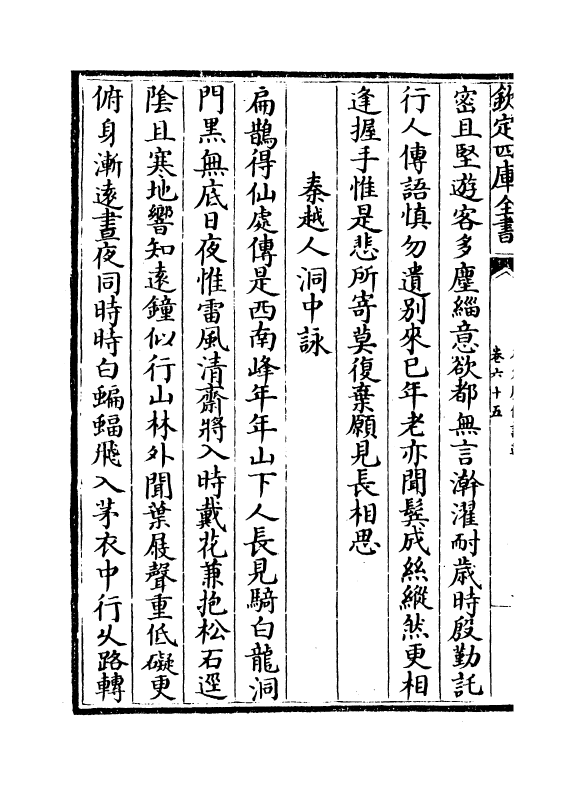 欽定四庫全書
卷六十五
密且堅遊客多塵緇意欲都無言澣濯耐歳時殷勤託
行人傳語慎勿遺別來已年老亦聞鬓成絲縱然更相
逢握手惟是悲所寄莫復棄願見長相思
秦越人洞中詠
扁鵲得仙處傳是西南峰年年山下人長見騎白龍洞
門黑無底日夜惟雷風清齋將入時戴花兼抱松石逕
陰且寒地響知遠鐘似行山林外聞葉屐聲重低礙更
俯身漸遠晝夜同時時白蝙蝠飛入茅衣中行乆路轉